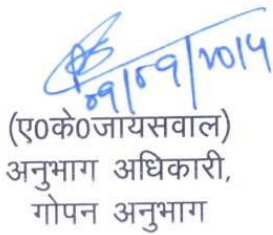 09/09/2014
(ए0के0जायसवाल)
अनुभाग अधिकारी,
गोपन अनुभाग